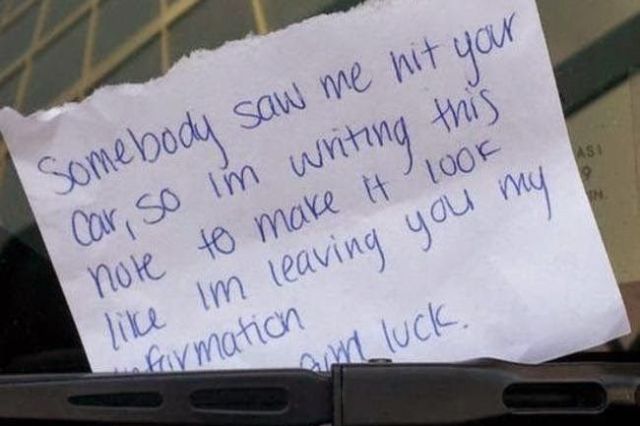 Somebody saw me hit your
car, so im writing this
note to make it look
like im leaving you my
information
good luck.
ASI
9